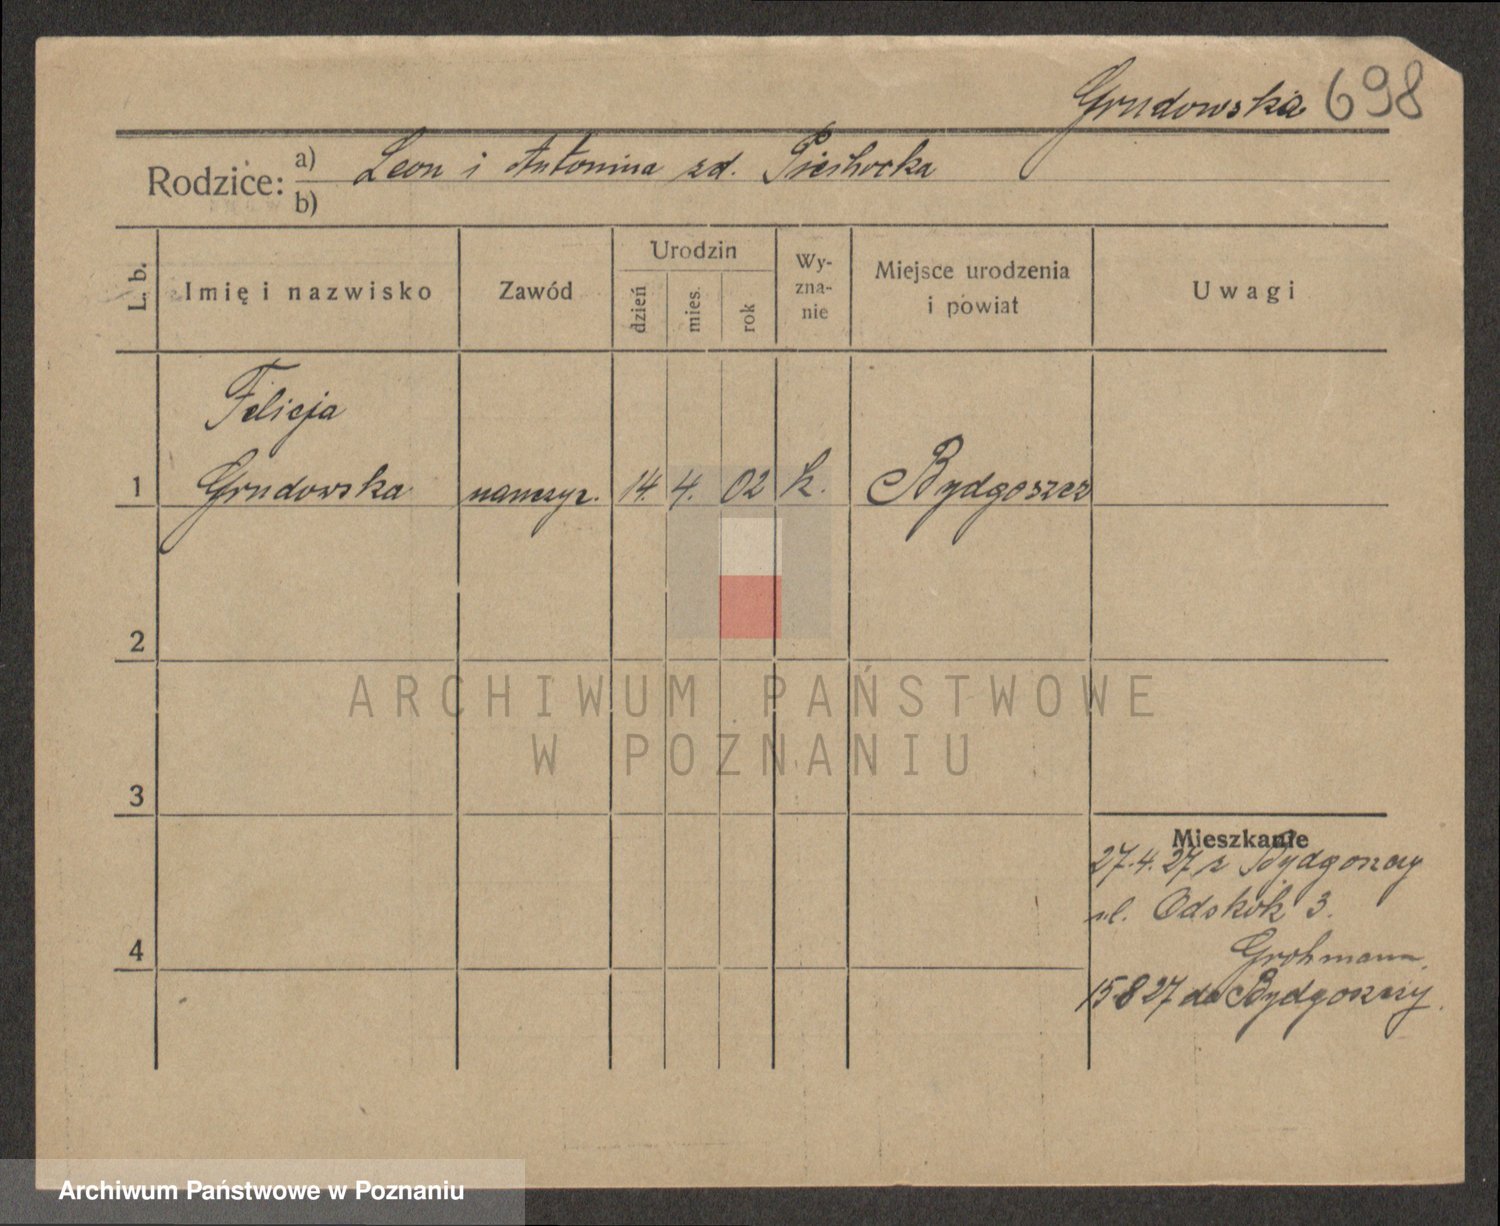 Grudowska 698
Rodzice: a) Leon i Antonina zd. Piechocka
b)
L. b.
Imię i nazwisko
Zawód
Urodzin
dzień
mies.
rok
Wy-
zna-
nie
Miejsce urodzenia
i powiat
Uwagi
Felicja
1 Grudowska nauczyc. 14. 4. 02 k. Bydgoszcz
2
ARCHIWUM PAŃSTWOWE
W POZNANIU
3
Mieszkanie
27.4.27 z Bydgoszczy
ul. Odskok 3.
4
Grohmann
15 8 27 do Bydgoszczy.
Archiwum Państwowe w Poznaniu